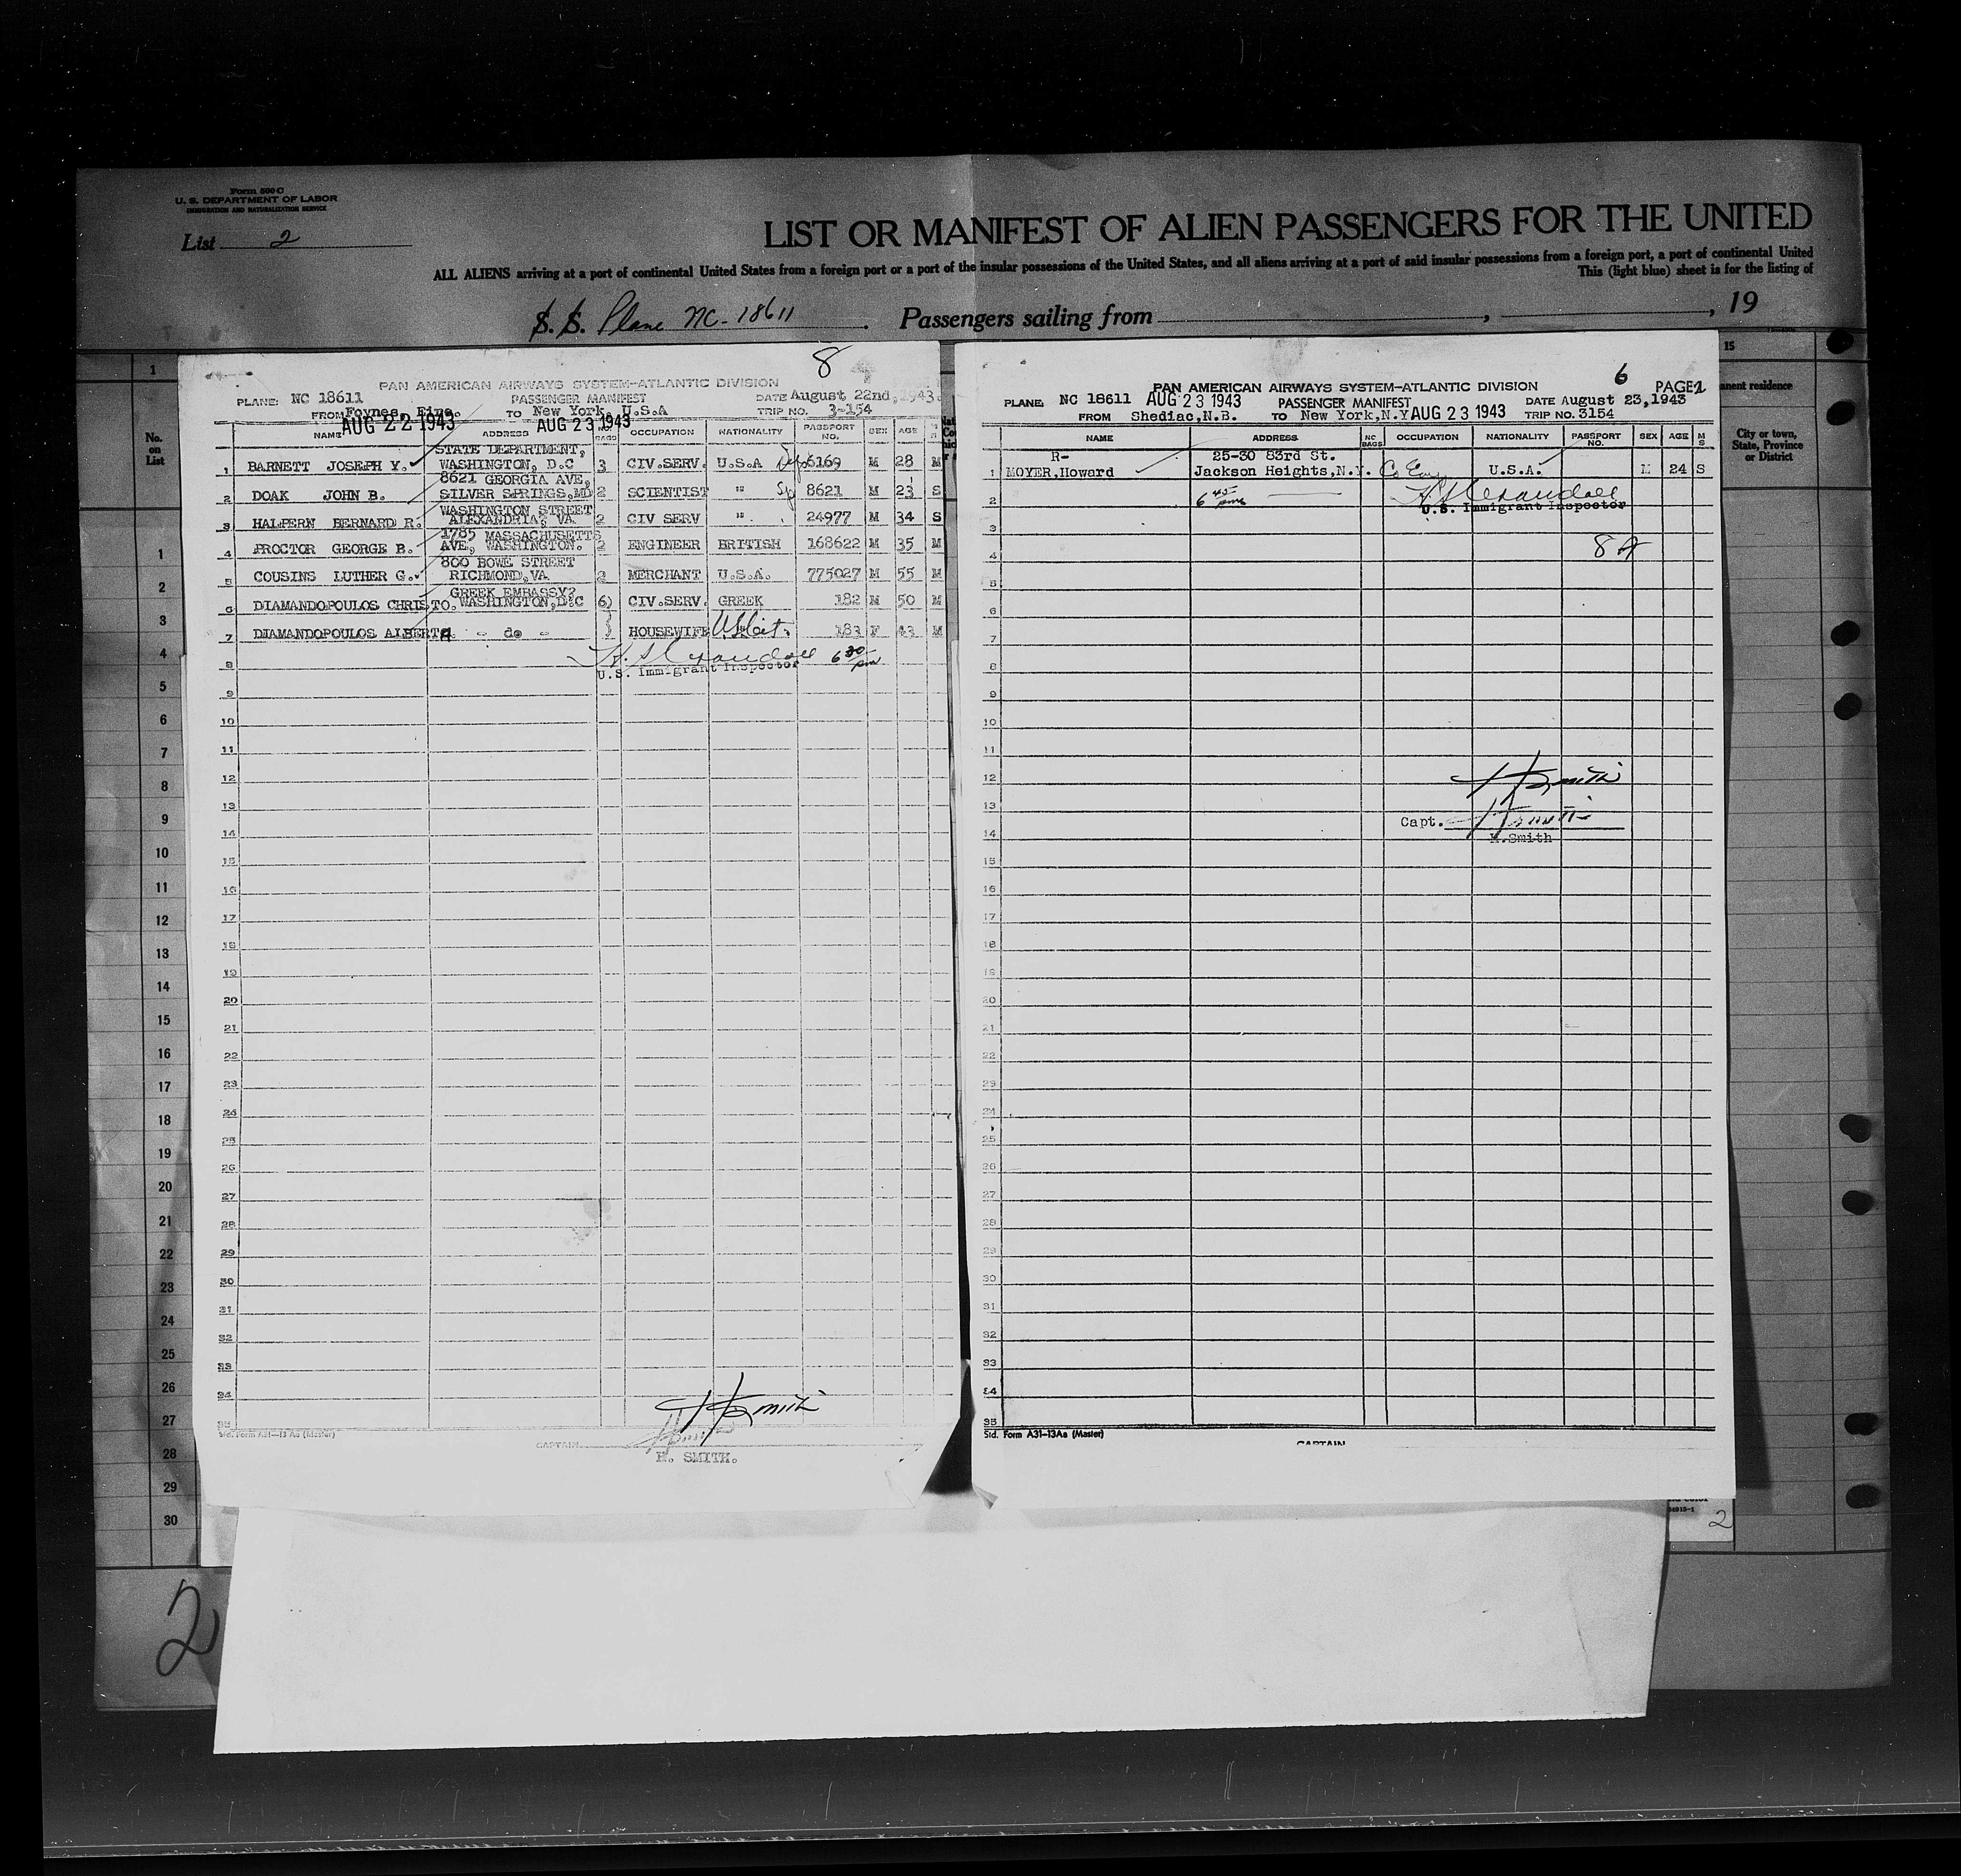 Form 500 C
U. S. DEPARTMENT OF LABOR
IMMIGRATION AND NATURALIZATION SERVICE
List 2
LIST OR MANIFEST OF ALIEN PASSENGERS FOR THE UNITED
ALL ALIENS arriving at a port of continental United States from a foreign port or a port of the insular possessions of the United States, and all aliens arriving at a port of said insular possessions from a foreign port, a port of continental United
This (light blue) sheet is for the listing of
S. S. Plane NC-18611 . Passengers sailing from , , 19
1
No. on List
1
2
3
4
5
6
7
8
9
10
11
12
13
14
15
16
17
18
19
20
21
22
23
24
25
26
27
28
29
30
8
PAN AMERICAN AIRWAYS SYSTEM-ATLANTIC DIVISION
PLANE: NC 18611 PASSENGER MANIFEST DATE August 22nd, 1943.
FROM Foynes, Eire. TO New York, U.S.A TRIP NO. 3-154
AUG 22 1943 AUG 23 1943
NAME ADDRESS BAGS OCCUPATION NATIONALITY PASSPORT NO. SEX AGE
STATE DEPARTMENT,
1 BARNETT JOSEPH Y. WASHINGTON, D.C 3 CIV.SERV. U.S.A 6169 M 28 M
8621 GEORGIA AVE,
2 DOAK JOHN B. SILVER SPRINGS,MD 2 SCIENTIST " Sp 8621 M 23 S
WASHINGTON STREET
3 HALPERN BERNARD R. ALEXANDRIA, VA 2 CIV SERV " 24977 M 34 S
1785 MASSACHUSETTS
4 PROCTOR GEORGE B. AVE, WASHINGTON. 2 ENGINEER BRITISH 168622 M 35 M
800 BOWE STREET
5 COUSINS LUTHER G. RICHMOND,VA 2 MERCHANT U.S.A. 775027 M 55 M
GREEK EMBASSY?
6 DIAMANDOPOULOS CHRISTO. WASHINGTON,D:C 6) CIV.SERV. GREEK 182 M 50 M
7 DIAMANDOPOULOS ALBERTA - do - ) HOUSEWIFE US Cit. 183 F 43 M
8 6 30 pm
U.S. Immigrant Inspector
9
10
11
12
13
14
15
16
17
18
19
20
21
22
23
24
25
26
27
28
29
30
31
32
33
34
35
H Smith
Std. Form A31-13Aa (Master)
CAPTAIN
H. SMITH.
6
PAN AMERICAN AIRWAYS SYSTEM-ATLANTIC DIVISION PAGE 1
PLANE NC 18611 AUG 23 1943 PASSENGER MANIFEST DATE August 23,1943
FROM Shediac,N.B. TO New York,N.Y AUG 23 1943 TRIP NO. 3154
NAME ADDRESS NO BAGS OCCUPATION NATIONALITY PASSPORT NO. SEX AGE M S
R- 25-30 83rd St.
1 MOYER,Howard Jackson Heights,N.Y. U.S.A. M 24 S
2 6 45 pm
U.S. Immigrant Inspector
3
4
5
6
7
8
9
10
11
12 H Smith
13
Capt. H Smith
14 H.Smith
15
16
17
18
19
20
21
22
23
24
25
26
27
28
29
30
31
32
33
34
35
Std. Form A31-13Aa (Master)
CAPTAIN
15
anent residence
City or town, State, Province or District
2
2